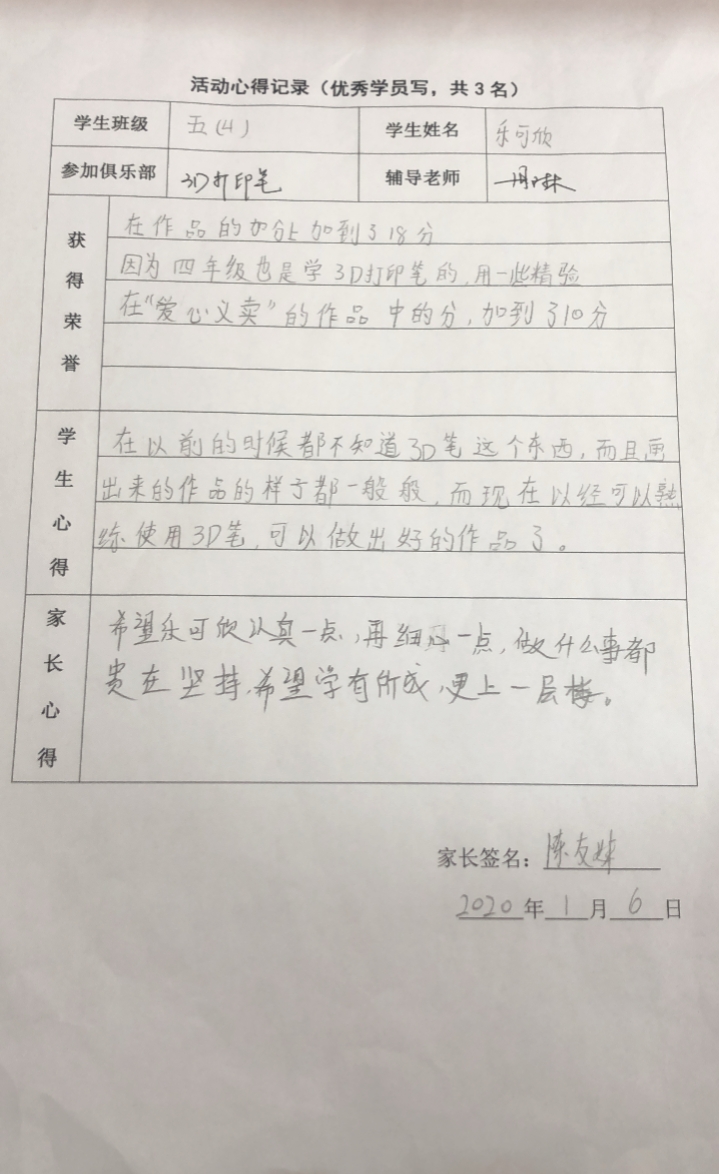 活动心得记录（优秀学员写，共3名）
学生班级 五(4) 学生姓名 乐可欣
参加俱乐部 3D打印笔 辅导老师
获得荣誉
在作品的加分上加到了18分
因为四年级也是学3D打印笔的，用一些精验
在“爱心义卖”的作品中的分，加到了10分
学生心得
在以前的时候都不知道3D笔这个东西，而且画
出来的作品的样子都一般般，而现在以经可以熟
练使用3D笔，可以做出好的作品了。
家长心得
希望乐可欣认真一点，再细心一点，做什么事都
贵在坚持，希望学有所成，更上一层楼。
家长签名：陈友妹
2020年1月6日